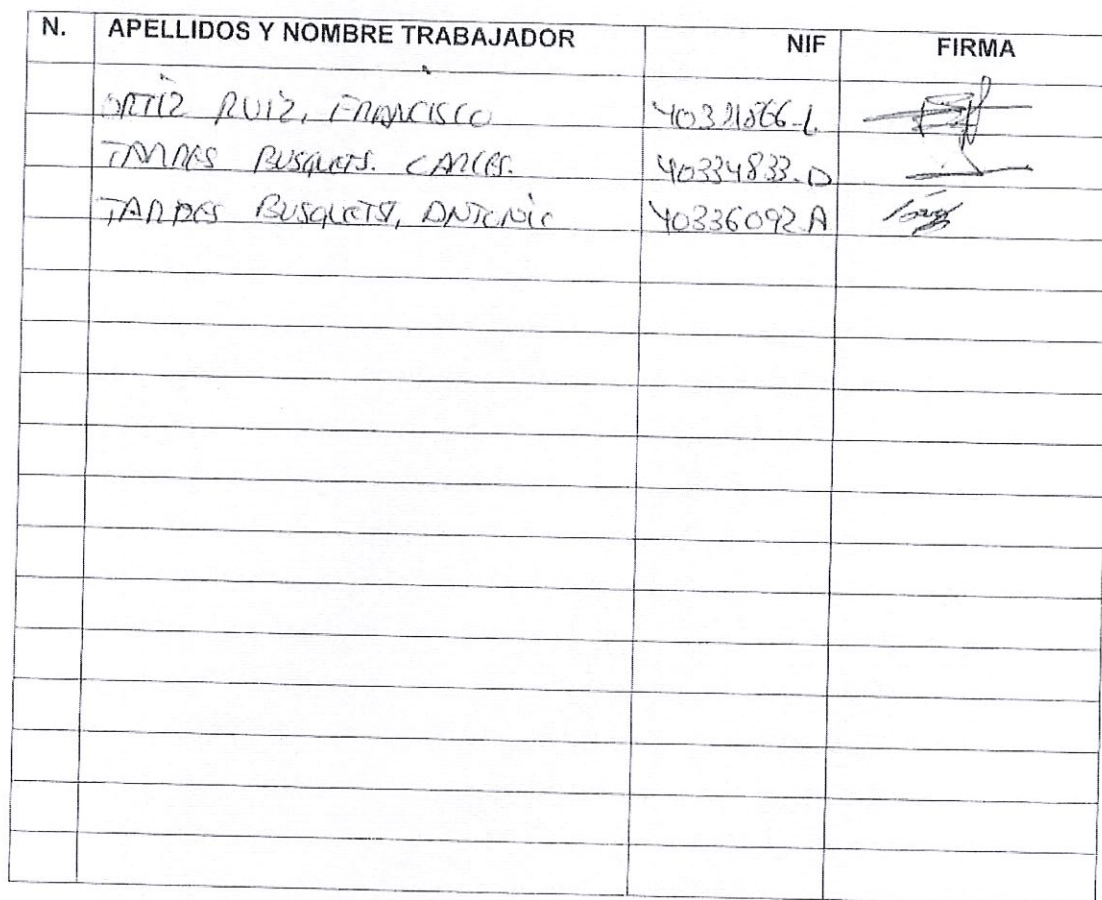 N. APELLIDOS Y NOMBRE TRABAJADOR NIF FIRMA
ORTIZ RUIZ, FRANCISCO
BUSQUETS. CARLES. 40334833-D
BUSQUETS, ANTONIO 40336092 A